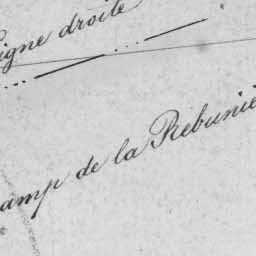 ligne droite
amp de la Rebunie